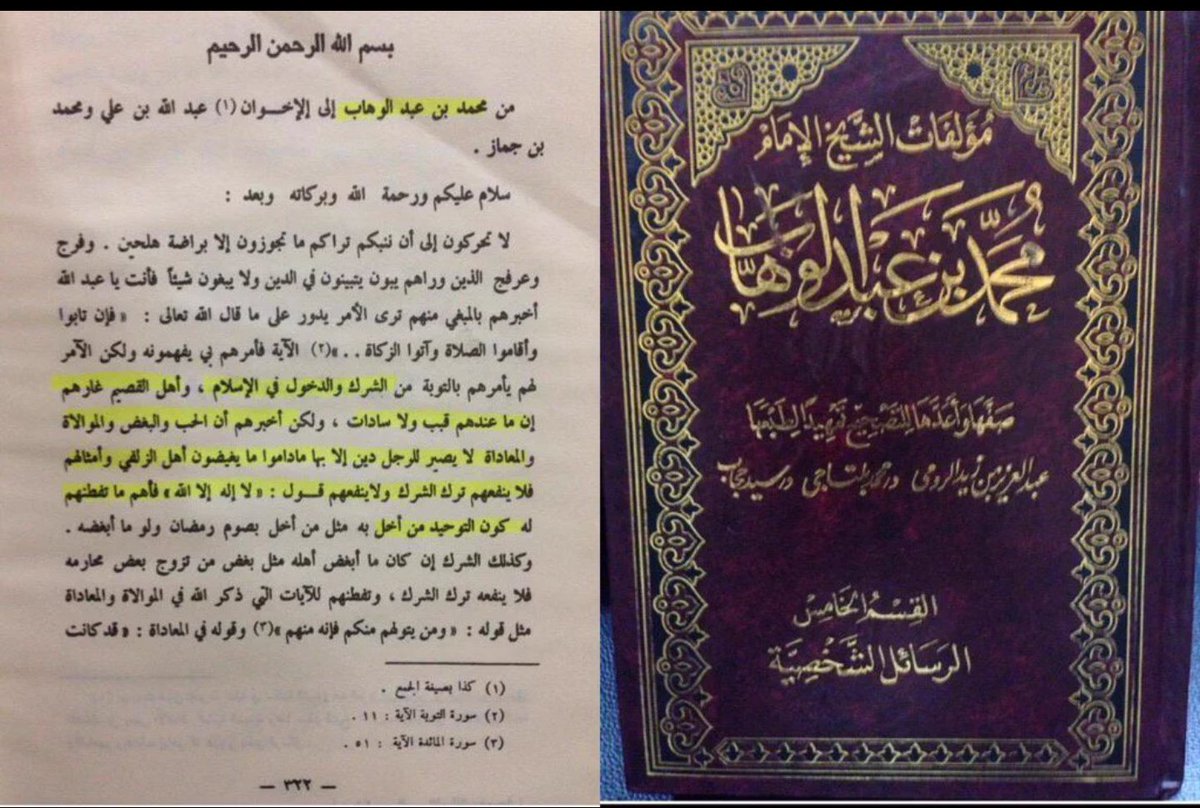 بسم الله الرحمن الرحيم
من محمد بن عبد الوهاب إلى إلإخوان (١) عبد الله بن علي ومحمد
بن جماز .
سلام عليكم ورحمة الله وبركاته وبعد :
لا تحركون إلى أن ننبكم تراكم ما تجوزون إلا براضة هلحين . وفرج
وعرفج الذين وراهم يبون يتبينون في الدين ولا يبغون شيئاً فأنت يا عبد الله
أخبرهم بالمبغي منهم ترى الأمر يدور على ما قال الله تعالى : « فإن تابوا
وأقاموا الصلاة وآتوا الزكاة . . »(٢) الآية فأمرهم بي يفهمونه ولكن الآمر
لهم يأمرهم بالتوبة من الشرك والدخول في الإسلام ، وأهل القصيم غارهم
إن ما عندهم قبب ولا سادات ، ولكن أخبرهم أن الحب والبغض والموالاة
والمعاداة لا يصير للرجل دين إلا بها ماداموا ما يغيضون أهل الزلفي وأمثالهم
فلا ينفعهم ترك الشرك ولاينفعهم قول : « لا إله إلا الله » فأهم ما تفطنهم
له كون التوحيد من أخل به مثل من أخل بصوم رمضان ولو ما أبغضه .
وكذلك الشرك إن كان ما أبغض أهله مثل بغض من تزوج بعض محارمه
فلا ينفعه ترك الشرك ، وتفطنهم للآيات التي ذكر الله في الموالاة والمعاداة
مثل قوله : « ومن يتولهم منكم فإنه منهم »(٣) وقوله في المعاداة : « قد كانت
(١) كذا بصيغة الجمع .
(٢) سورة التوبة الآية : ١١ .
(٣) سورة المائدة الآية : ٥١ .
— ٣٢٢ —
مؤلفات الشيخ الإمام
محمد بن عبد الوهاب
صنفها وأعدها للتصحيح تمهيدا لطبعها
عبد العزيز بن زيد الرومي د. محمد بلتاجي د. سيد حجاب
القسم الخامس
الرسائل الشخصية